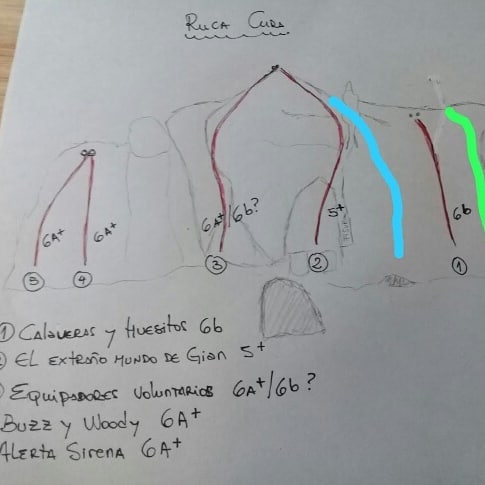 Ruca Cura
6A+
6A+
6A+/6b?
5+
6b
5
4
3
2
1
1 Calaveras y Huesitos 6b
El extraño mundo de Gian 5+
Equipadores voluntarios 6A+/6b?
Buzz y Woody 6A+
Alerta Sirena 6A+